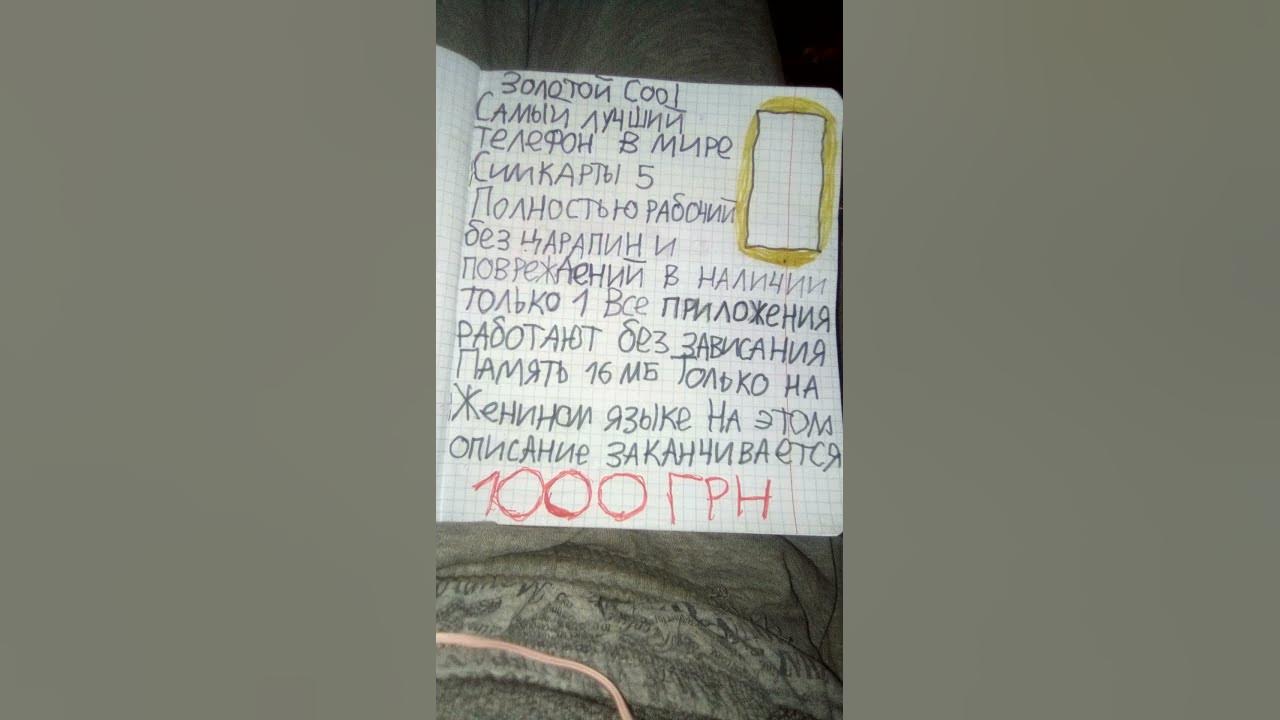 Золотой Cool
Самый лучший
телефон в мире
Симкарты 5
Полностью рабочий
без царапин и
повреждений в наличии
только 1 Все приложения
работают без зависания
Память 16 мб Только на
Женином языке На этом
описание заканчивается
1000 ГРН